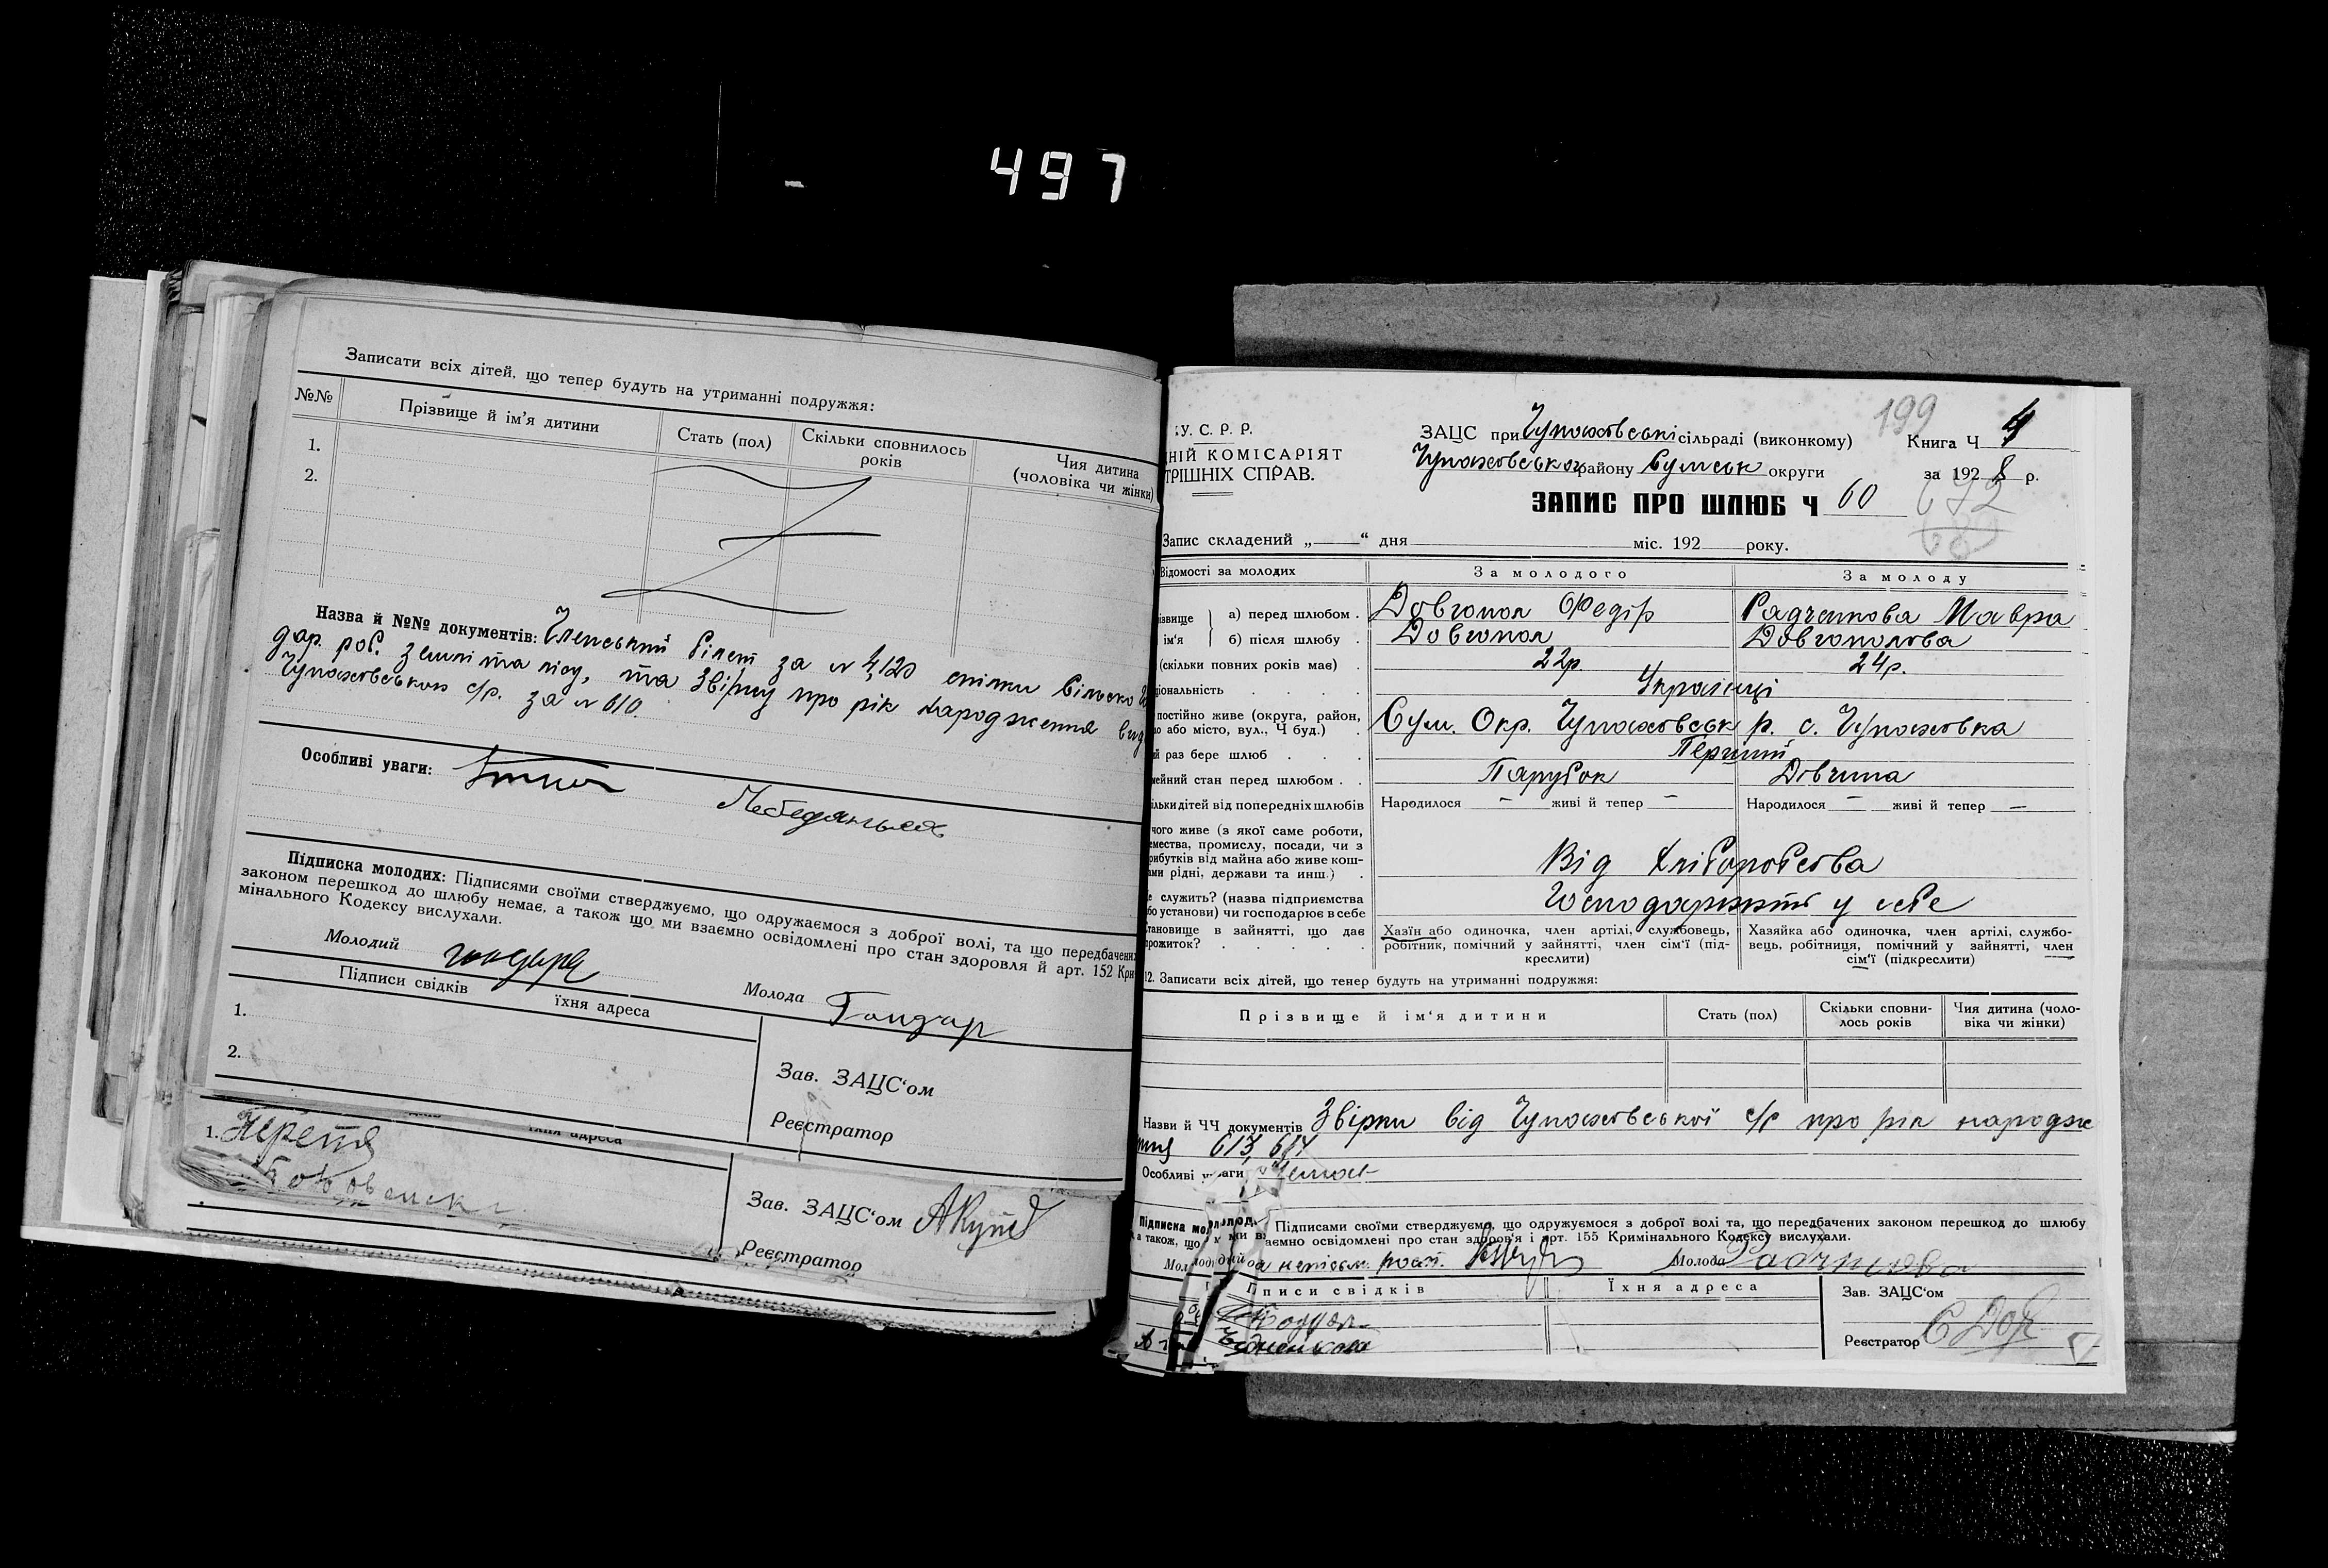 497
Записати всіх дітей, що тепер будуть на утриманні подружжя:
№№ Прізвище й ім'я дитини Стать (пол) Скільки сповнилось років Чия дитина (чоловіка чи жінки)
1.
2.
Назва й №№ документів: Членський білет за № 4,120 спілки
дар. роб. землі та лісу, та Звірку про рік народження
Чупахівськой с/р. за № 610.
Особливі уваги:
Підписка молодих: Підписями своїми стверджуємо, що одружаємося з доброї волі, та що передбачених
законом перешкод до шлюбу немає, а також що ми взаємно освідомлені про стан здоровля й арт. 152 Кри
мінального Кодексу вислухали.
Молодий Молода Гондар
Підписи свідків їхня адреса
1.
2.
Зав. ЗАЦС'ом
Реєстратор
1. їхня адреса
Зав. ЗАЦС'ом
Реєстратор
У. С. Р. Р.
НІЙ КОМІСАРІЯТ
ТРІШНІХ СПРАВ.
199
ЗАЦС при Чупахівські сільраді (виконкому) Книга Ч 4
Чупахівськ району Сумськ округи за 1928 р.
ЗАПИС ПРО ШЛЮБ Ч 60
672
60
Запис складений „ “ дня міс. 192 року.
Відомості за молодих За молодого За молоду
ізвище а) перед шлюбом . Довгопол Федір Радченкова Мавра
ім'я б) після шлюбу . Довгопол Довгополова
(скільки повних років має) . 22р. 24р.
ціональність . . . . Українці
постійно живе (округа, район, Сум. Окр. Чупахівськ р. с. Чупахівка
о або місто, вул., Ч буд.) .
й раз бере шлюб . . . Перший
мейний стан перед шлюбом . . Парубок Дівчина
ільки дітей від попередніх шлюбів Народилося – живі й тепер – Народилося – живі й тепер –
чого живе (з якої саме роботи,
емества, промислу, посади, чи з
рибутків від майна або живе кош-
ами рідні, держави та инш.) . Від хліборобства
е служить? (назва підприємства
бо установи) чи господарює в себе Господарюють у себе
тановище в зайнятті, що дає
прожиток? . . . . .
Хазяїн або одиночка, член артілі, службовець, робітник, помічний у зайнятті, член сім'ї (підкреслити)
Хазяйка або одиночка, член артілі, службовець, робітниця, помічний у зайнятті, член сім'ї (підкреслити)
12. Записати всіх дітей, що тепер будуть на утриманні подружжя:
Прізвище й ім'я дитини Стать (пол) Скільки сповнилось років Чия дитина (чоловіка чи жінки)
Назви й ЧЧ документів Звірки від Чупахівської с/р про рік народже
ння 613, 614
Особливі уваги Немає
Підписка мол Підписами своїми стверджуємо, що одружуємося з доброї волі та, що передбачених законом перешкод до шлюбу
а також, що ми взаємно освідомлені про стан здоров'я і арт. 155 Кримінального Кодексу вислухали.
Молодий Молода Радченкова
Підписи свідків Їхня адреса
Зав. ЗАЦС'ом
Реєстратор